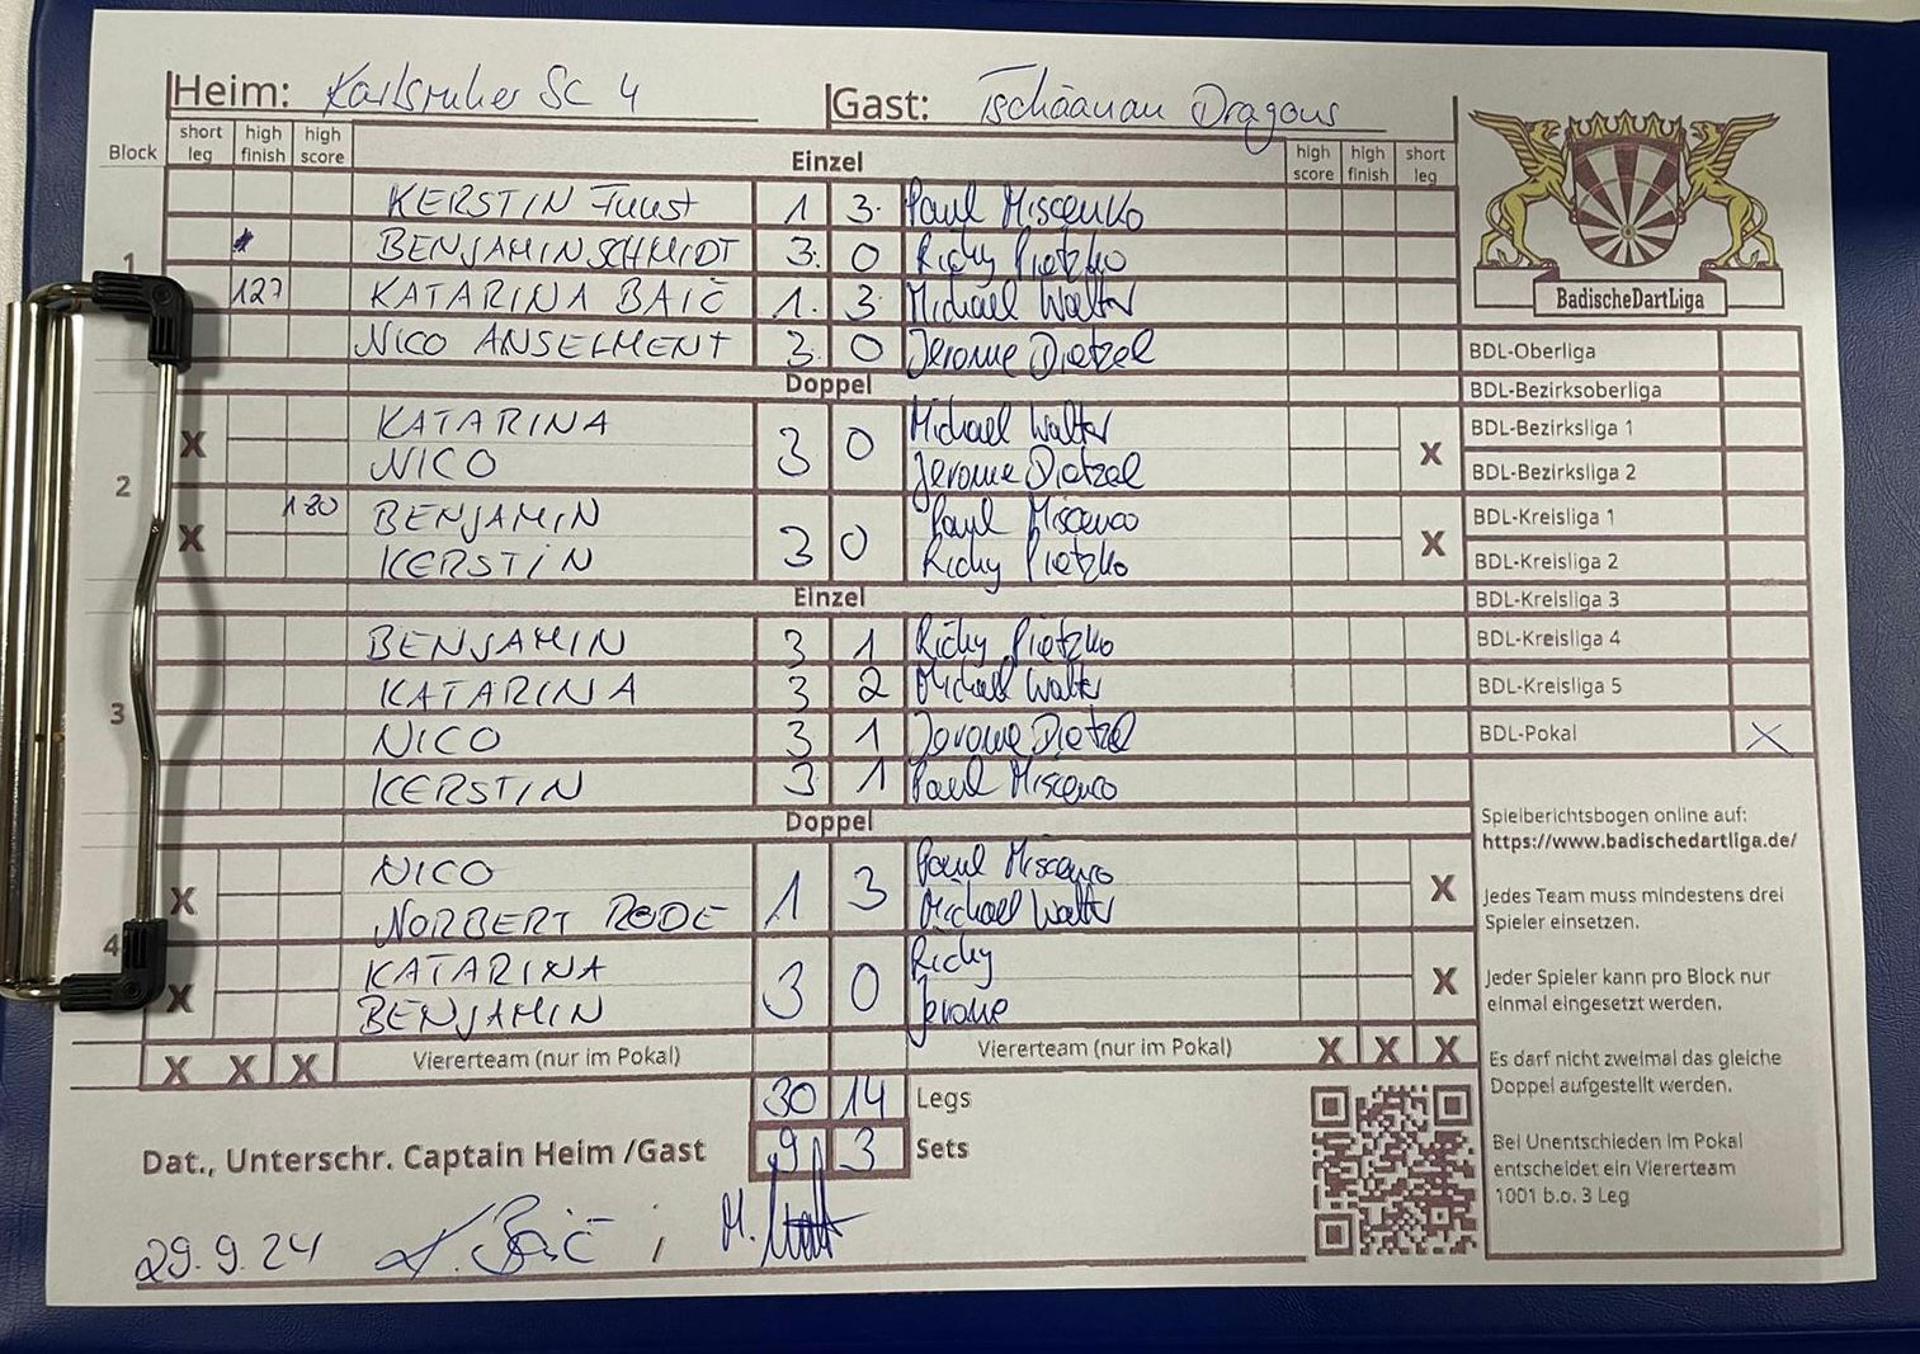 Heim: Karlsruher SC 4 Gast: Tschäänau Dragons
Block short leg high finish high score Einzel high score high finish short leg
KERSTIN 1 3. Paul Miscenko
1 BENJAMIN SCHMIDT 3. 0 Richy Pietzko
127 KATARINA BAIĆ 1. 3. Michael Walter
NICO ANSELMENT 3. 0 Jerome Dietzel
Doppel
X KATARINA 3 0 Michael Walter X
NICO Jerome Dietzel
2
X 180 BENJAMIN 3 0 Paul Miscenco X
KERSTIN Richy Pietzko
Einzel
BENJAMIN 3 1 Richy Pietzko
KATARINA 3 2 Michael Walter
3 NICO 3 1 Jerome Dietzel
KERSTIN 3 1 Paul Miscenco
Doppel
X NICO 1 3 Paul Miscenco X
NORBERT RODE Michael Walter
4
X KATARINA 3 0 Richy X
BENJAMIN Jerome
X X X Viererteam (nur im Pokal) Viererteam (nur im Pokal) X X X
30 14 Legs
Dat., Unterschr. Captain Heim /Gast 9 3 Sets
29.9.24 K. Baić / M.
BadischeDartLiga
BDL-Oberliga
BDL-Bezirksoberliga
BDL-Bezirksliga 1
BDL-Bezirksliga 2
BDL-Kreisliga 1
BDL-Kreisliga 2
BDL-Kreisliga 3
BDL-Kreisliga 4
BDL-Kreisliga 5
BDL-Pokal X
Spielberichtsbogen online auf:
https://www.badischedartliga.de/
Jedes Team muss mindestens drei
Spieler einsetzen.
Jeder Spieler kann pro Block nur
einmal eingesetzt werden.
Es darf nicht zweimal das gleiche
Doppel aufgestellt werden.
Bei Unentschieden im Pokal
entscheidet ein Viererteam
1001 b.o. 3 Leg